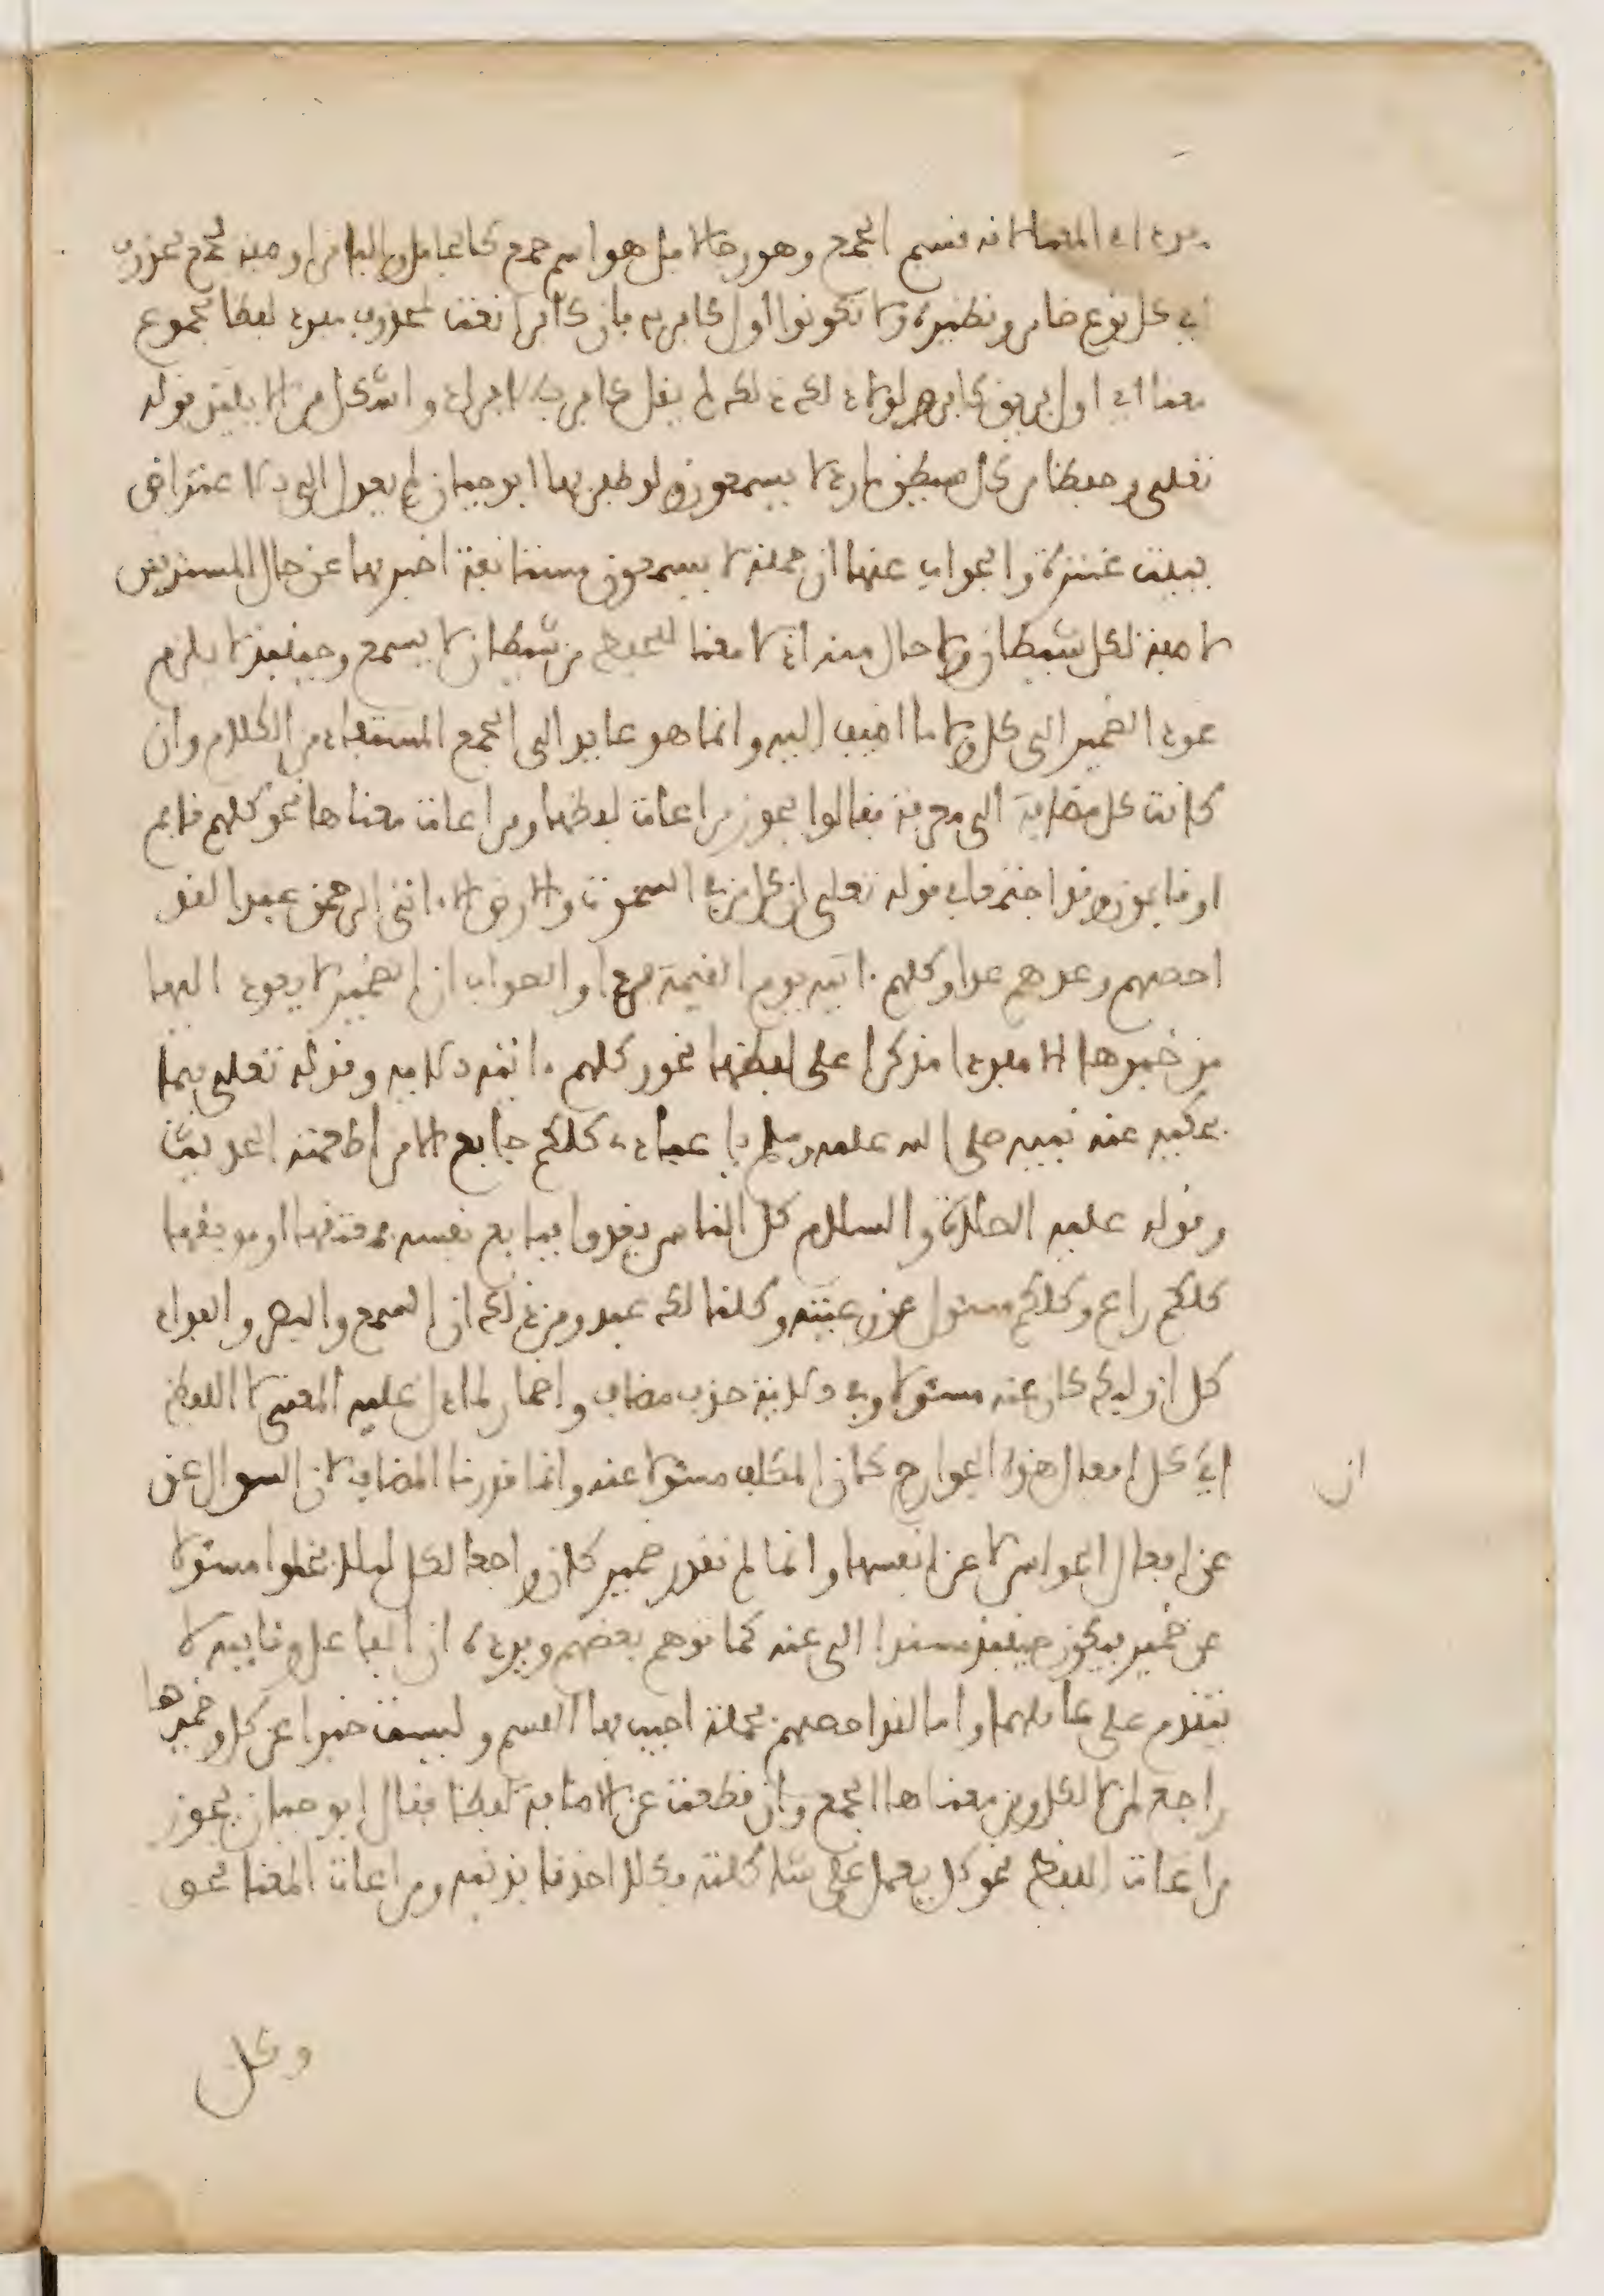 مفرد اللفظ لانه قسيم الجمع وهو رجالا بل هو اسم جمع كالجامل والباقر او صفة لجمع محذوف
اي كل نوع ضامر ونظيره ولا تكونوا اول كافر به فان كافرا نعت لمحذوف مفرد لفظا مجموع
معنا اي اول فريق كافر ولولا ذلك لم يقل كافر بالافراد واشكل من الايتين قوله
تعلى وحفظا من كل شيطن مارد لا يسمعون ولو ظفر بها ابو حيان لم يعدل الى الاعتراض
ببيت عنترة والجواب عنها ان جملة لا يسمعون مستانفة اخبر بها عن حال المسترقين
لا صفة لكل شيطان ولا حال منه اذ لا معنا للحفظ من شيطان لا يسمع وحينيذ لا يلزم
عود الضمير الى كل ولا ما اضيف اليه وانما هو عايد الى الجمع المستفاد من الكلام وان
كانت كل مضافة الى معرفة فقالوا يجوز مراعات لفظها ومراعات معناها نحو كلهم قايم
او قايمون وقد اجتمعا في قوله تعلى ان كل من في السموت والارض الا ءاتى الرحمن عبدا لقد
احصهم وعدهم عدا وكلهم ءاتيه يوم القيمة فردا والصواب ان الضمير لا يعود اليها
من خبرها الا مفردا مذكرا على لفظها نحو وكلهم ءاتيه الاية وقوله تعلى فيما
يحكيه عنه نبيه صلى الله عليه وسلم يا عبادي كلكم جايع الا من اطعمته الحديث
وقوله عليه الصلاة والسلام كل الناس يغدوا فبايع نفسه فمعتقها او موبقها
كلكم راع وكلكم مسئول عن رعيته وكلنا لك عبد ومن ذلك ان السمع والبصر والفواد
كل اوليك كان عنه مسئولا وفي الاية حذف مضاف واضمار لما دل عليه المعنى لا اللفظ
اي كل افعال هذه الجوارح كان المكلف مسئولا عنه وانما قدرنا المضاف لان السوال عن
ان
عن افعال الحواس لا عن انفسها وانما لم نقدر ضمير كان راجعا لكل ليلا يخلوا مسئولا
عن ضمير فيكون حينيذ مسندا الى عنه كما توهم بعضهم ويرده ان الفاعل ونايبه لا
يتقدم على عاملهما واما لقد احصهم فجملة اجيب بها القسم وليست خبرا عن كل وضميرها
راجع لمن لا لكل ومن معناها الجمع وان قطعت عن الاضافة لفظا فقال ابو حيان يجوز
مراعات اللفظ نحو كل يعمل على شاكلته فكلا اخذنا بذنبه ومراعات المعنا نحو
وكل